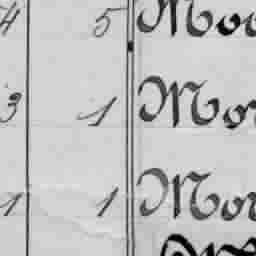 4 5 Moo
3 1 Mor
1 1 Mor